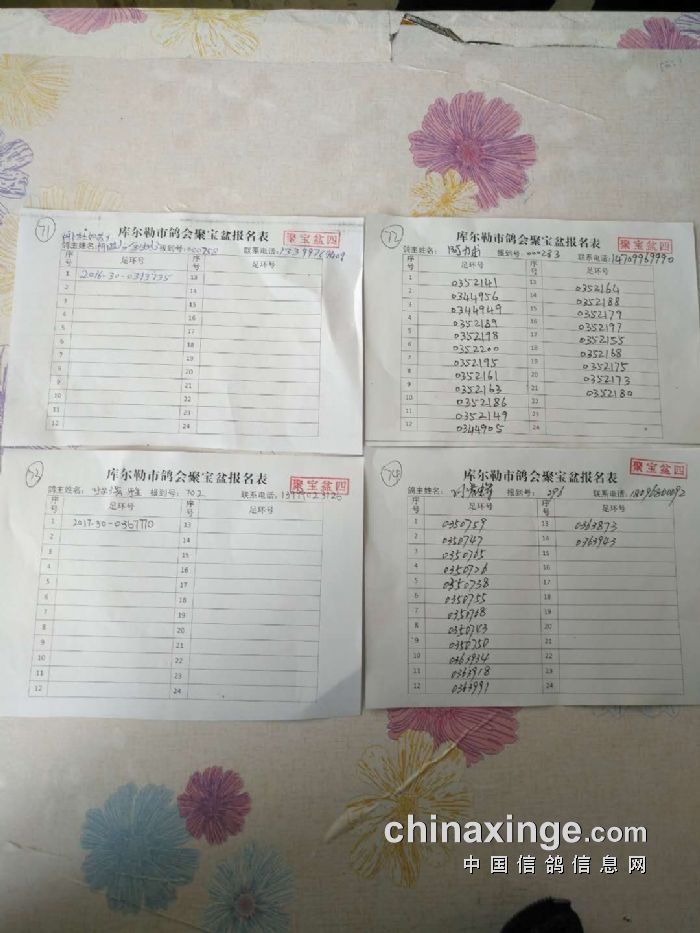 71
库尔勒市鸽会聚宝盆报名表
聚宝盆四
鸽主姓名: 报到号: 000758 联系电话:
序号 足环号 序号 足环号
1 2016-30-0393735 13
2 14
3 15
4 16
5 17
6 18
7 19
8 20
9 21
10 22
11 23
12 24
72
库尔勒市鸽会聚宝盆报名表
聚宝盆四
鸽主姓名: 报到号: 000283 联系电话: 14709969990
序号 足环号 序号 足环号
1 0352141 13 0352164
2 0344956 14 0352188
3 0344949 15 0352179
4 0352189 16 0352197
5 0352198 17 0352155
6 0352200 18 0352168
7 0352195 19 0352175
8 0352161 20 0352173
9 0352163 21 0352180
10 0352186 22
11 0352149 23
12 0344905 24
库尔勒市鸽会聚宝盆报名表
聚宝盆四
鸽主姓名: 报到号: 702 联系电话:
序号 足环号 序号 足环号
1 2017-30-0367770 13
2 14
3 15
4 16
5 17
6 18
7 19
8 20
9 21
10 22
11 23
12 24
74
库尔勒市鸽会聚宝盆报名表
聚宝盆四
鸽主姓名: 报到号: 296 联系电话: 18096800092
序号 足环号 序号 足环号
1 0350759 13 0363873
2 0350747 14 0363943
3 0350765 15
4 0350726 16
5 0350738 17
6 0350755 18
7 0350768 19
8 0350743 20
9 0350750 21
10 0363934 22
11 0363918 23
12 0363991 24
chinaxinge.com
中国信鸽信息网